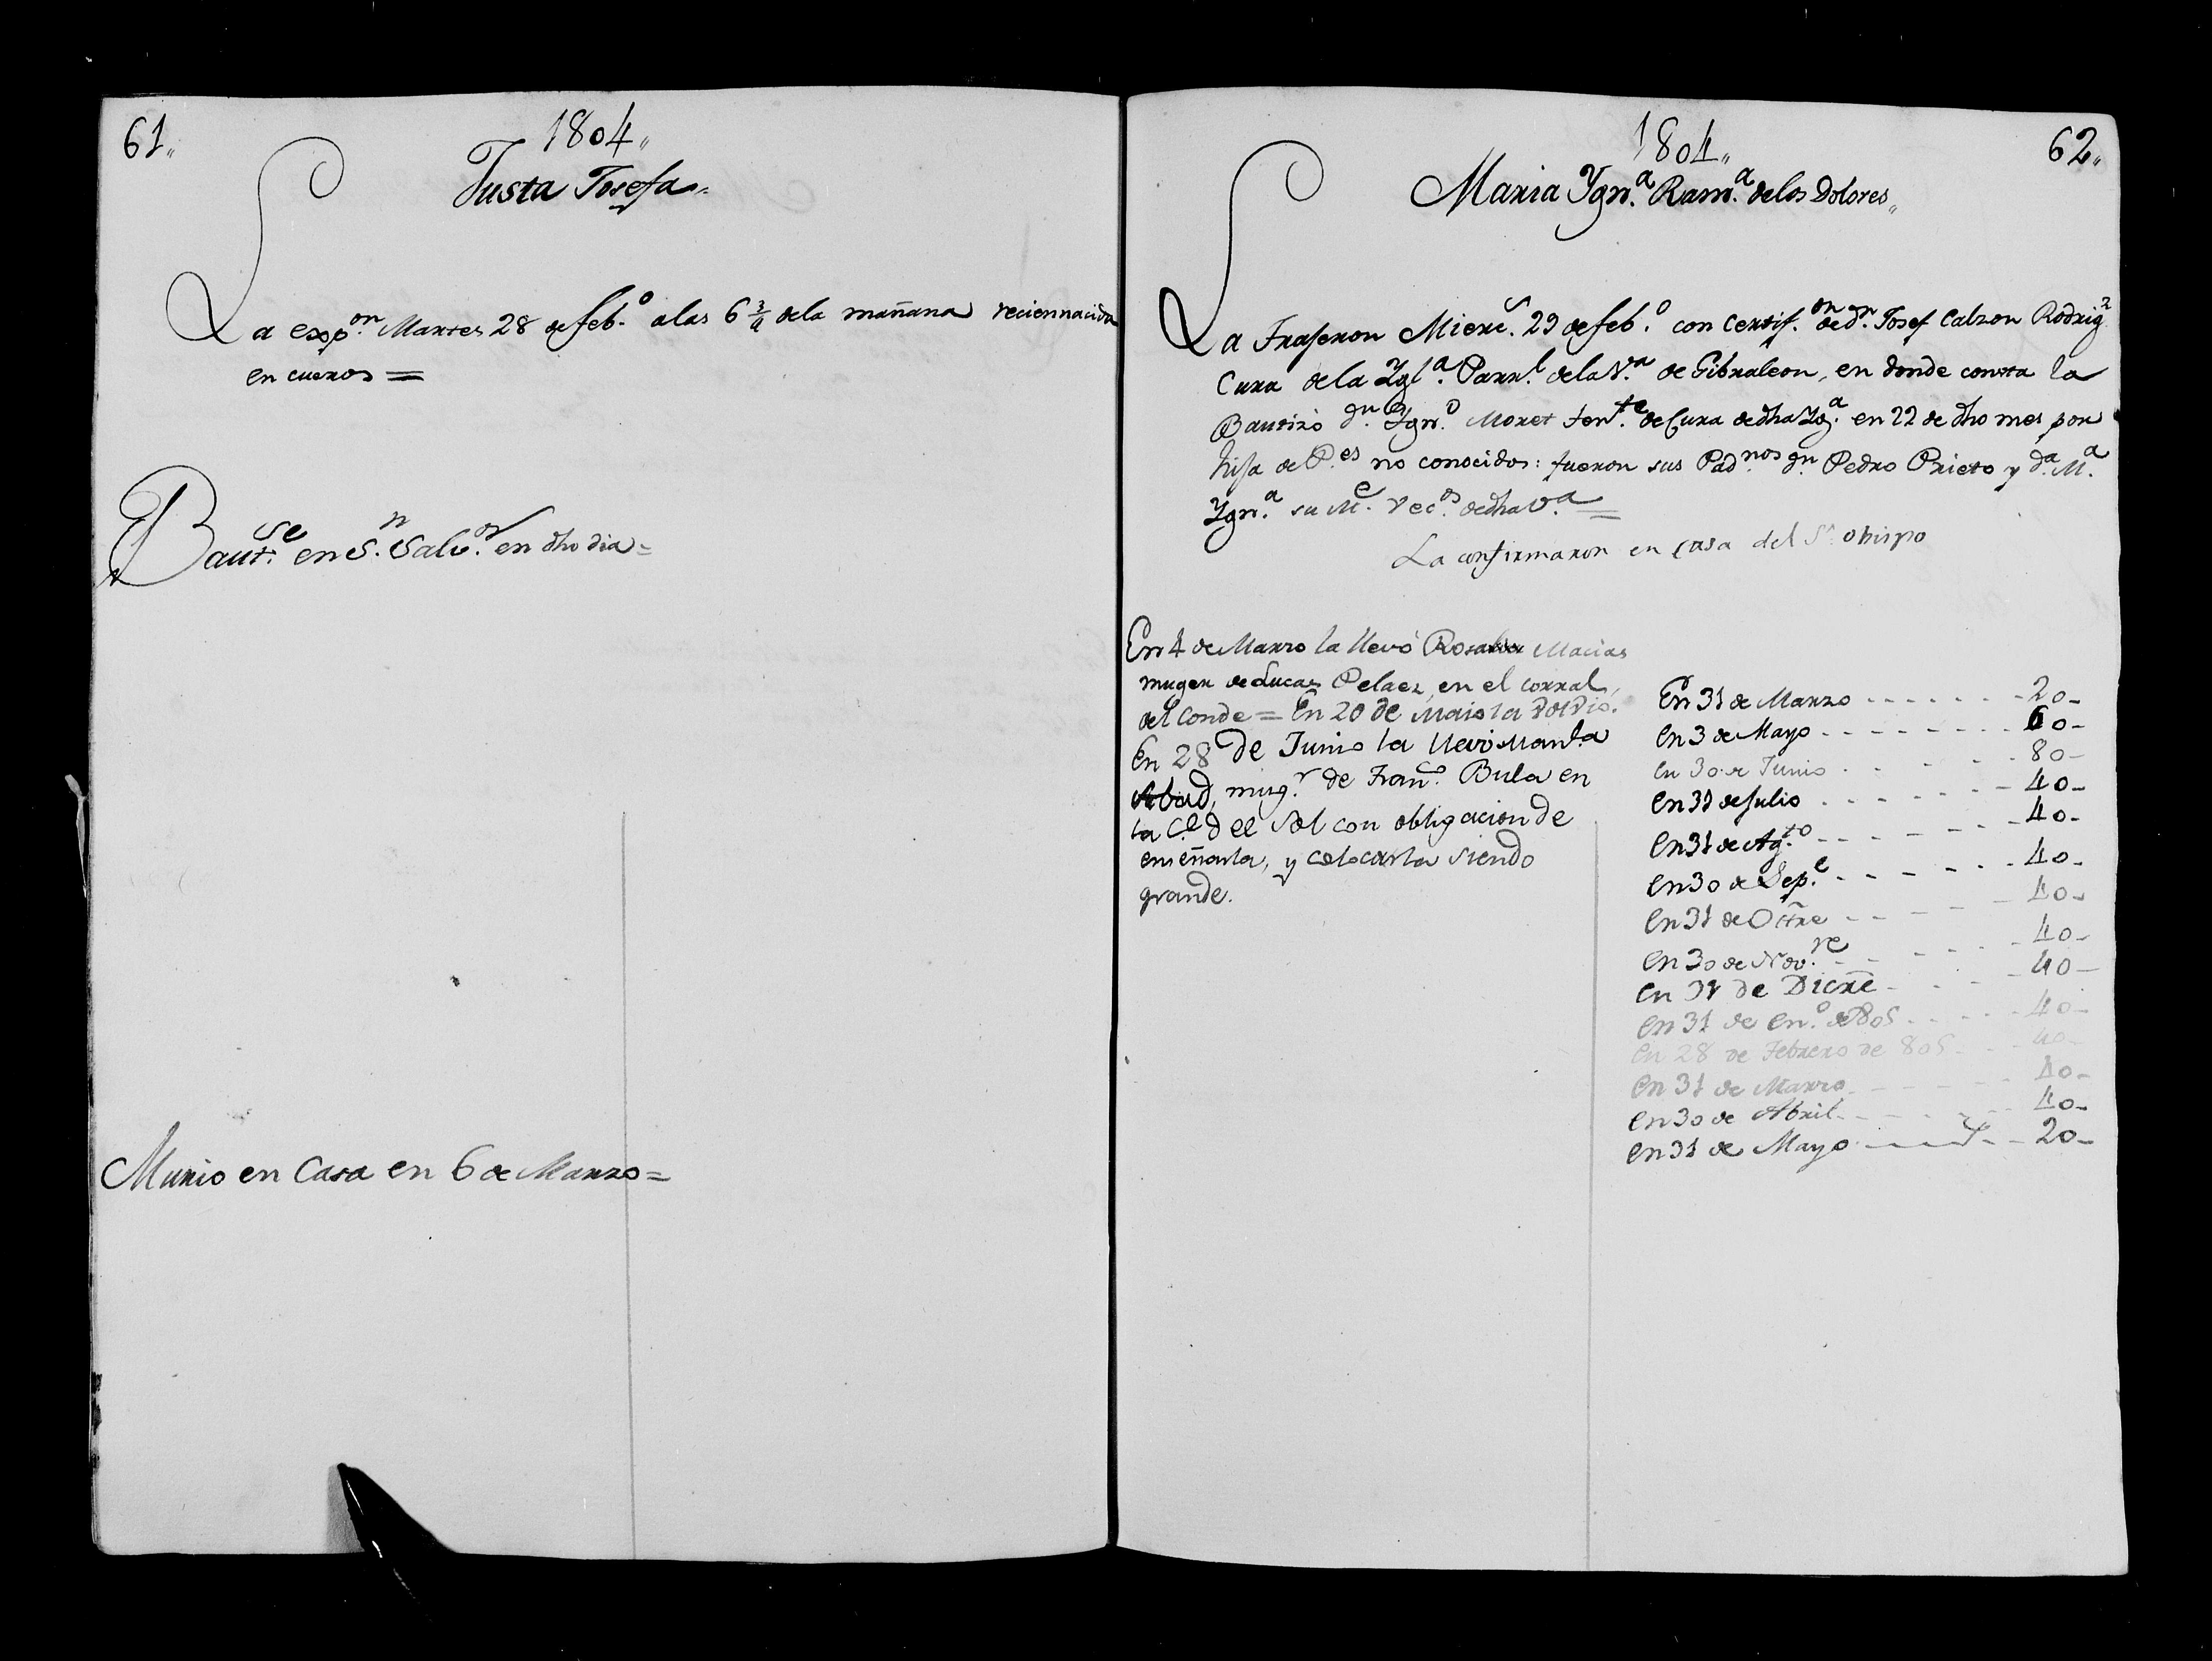 61„
1804„
Justa Josefa„
La exp.on Martes 28 de feb.o a las 6 3/4 de la mañana reciennacida
en cueros =
Baut.se en S.n Salv.or en dho dia =
Murio en Casa en 6 de Marzo =
62„
1804„
Maria Ygn.a Ram.a de los Dolores„
La Trajeron Mierc.s 29 de feb.o con Certif.on de d.n Josef Calzon Rodrig.z
Cura de la Ygl.a Parr.l de la V.a de Gibraleon, en donde consta la
Bautizò d.n Ygn.o Moret ten.te de Cura de dha Yg.a en 22 de dho mes por
hija de P.es no conocidos: fueron sus Pad.nos d.n Pedro Prieto y d.a M.a
Ygn.a su M.e Vec.os de dha V.a =
La confirmaron en casa del S.r obispo
En 4 de Marzo la llevó Macias
muger de Lucas Pelaez, en el corral
del Conde = En 20 de Maio la volvio.
En 28 de Junio la llevo Man.la
Abad, mug.r de Fran.co Bula en
la C.e del Sol con obligacion de
enseñarla, y colocarla siendo
grande.
En 31 de Marzo - - - - - - 20-
En 3 de Mayo - - - - - - - 60-
En 30 de Junio - - - - - 80-
En 31 de Julio - - - - - - 40-
En 31 de Ag.to - - - - - - 40-
En 30 de Sep.e - - - - - - 40-
En 31 de Octre - - - - - 40-
En 30 de Nov.re - - - - - 40-
En 31 de Dicre - - - - 40-
En 31 de En.o de 805 - - - - 40-
En 28 de Febrero de 805 - - - 40-
En 31 de Marzo - - - - - 40-
En 30 de Abril - - - - - 40-
En 31 de Mayo - - - - - 20-